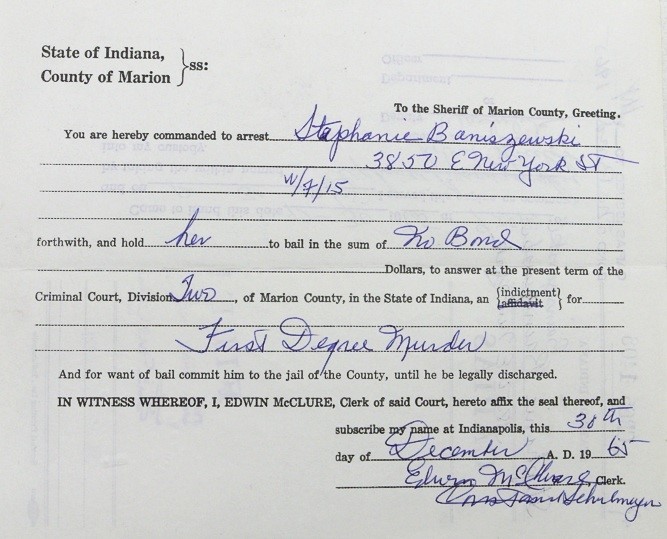 State of Indiana,
County of Marion } ss:
To the Sheriff of Marion County, Greeting.
You are hereby commanded to arrest Staphanie Baniszewski
3850 E New York ST
W/7/15
forthwith, and hold her to bail in the sum of No Bond
Dollars, to answer at the present term of the
Criminal Court, Division Two, of Marion County, in the State of Indiana, an {indictment} {affidavit} for
First Degree Murder
And for want of bail commit him to the jail of the County, until he be legally discharged.
IN WITNESS WHEREOF, I, EDWIN McCLURE, Clerk of said Court, hereto affix the seal thereof, and
subscribe my name at Indianapolis, this 30th
day of December A. D. 19 65
Edwin McClure, Clerk.